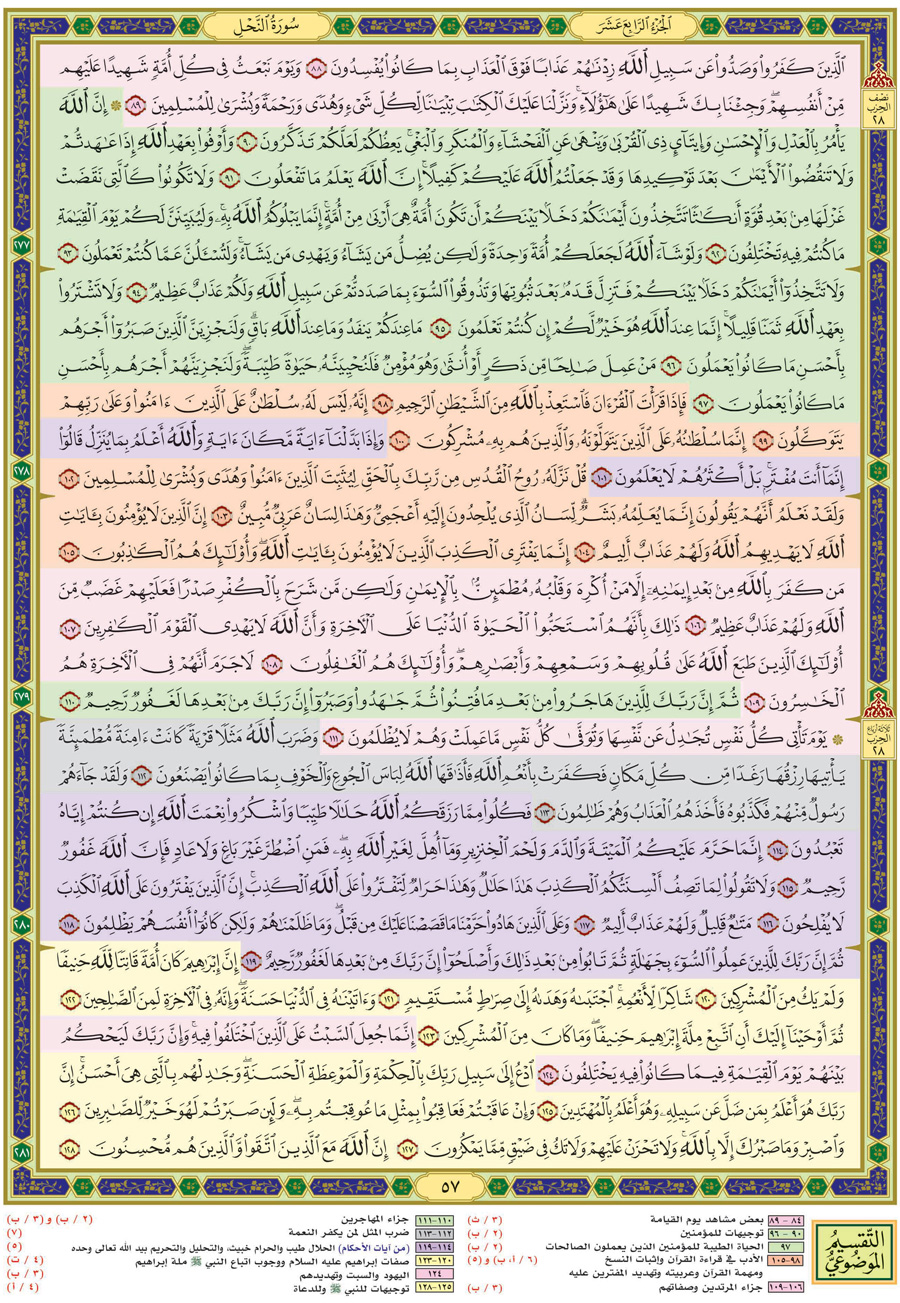 الجُزْءُ الرَّابِعَ عَشَرَ
سُورَةُ النَّحْلِ
ٱلَّذِينَ كَفَرُوا۟ وَصَدُّوا۟ عَن سَبِيلِ ٱللَّهِ زِدْنَٰهُمْ عَذَابًا فَوْقَ ٱلْعَذَابِ بِمَا كَانُوا۟ يُفْسِدُونَ ٨٨ وَيَوْمَ نَبْعَثُ فِى كُلِّ أُمَّةٍ شَهِيدًا عَلَيْهِم
مِّنْ أَنفُسِهِمْ ۖ وَجِئْنَا بِكَ شَهِيدًا عَلَىٰ هَٰٓؤُلَآءِ ۚ وَنَزَّلْنَا عَلَيْكَ ٱلْكِتَٰبَ تِبْيَٰنًا لِّكُلِّ شَىْءٍ وَهُدًى وَرَحْمَةً وَبُشْرَىٰ لِلْمُسْلِمِينَ ٨٩ ۞ إِنَّ ٱللَّهَ
نصف
الحزب
٢٨
يَأْمُرُ بِٱلْعَدْلِ وَٱلْإِحْسَٰنِ وَإِيتَآئِ ذِى ٱلْقُرْبَىٰ وَيَنْهَىٰ عَنِ ٱلْفَحْشَآءِ وَٱلْمُنكَرِ وَٱلْبَغْىِ ۚ يَعِظُكُمْ لَعَلَّكُمْ تَذَكَّرُونَ ٩٠ وَأَوْفُوا۟ بِعَهْدِ ٱللَّهِ إِذَا عَٰهَدتُّمْ
وَلَا تَنقُضُوا۟ ٱلْأَيْمَٰنَ بَعْدَ تَوْكِيدِهَا وَقَدْ جَعَلْتُمُ ٱللَّهَ عَلَيْكُمْ كَفِيلًا ۚ إِنَّ ٱللَّهَ يَعْلَمُ مَا تَفْعَلُونَ ٩١ وَلَا تَكُونُوا۟ كَٱلَّتِى نَقَضَتْ
غَزْلَهَا مِنۢ بَعْدِ قُوَّةٍ أَنكَٰثًا تَتَّخِذُونَ أَيْمَٰنَكُمْ دَخَلًۢا بَيْنَكُمْ أَن تَكُونَ أُمَّةٌ هِىَ أَرْبَىٰ مِنْ أُمَّةٍ ۚ إِنَّمَا يَبْلُوكُمُ ٱللَّهُ بِهِۦ ۚ وَلَيُبَيِّنَنَّ لَكُمْ يَوْمَ ٱلْقِيَٰمَةِ
مَا كُنتُمْ فِيهِ تَخْتَلِفُونَ ٩٢ وَلَوْ شَآءَ ٱللَّهُ لَجَعَلَكُمْ أُمَّةً وَٰحِدَةً وَلَٰكِن يُضِلُّ مَن يَشَآءُ وَيَهْدِى مَن يَشَآءُ ۚ وَلَتُسْـَٔلُنَّ عَمَّا كُنتُمْ تَعْمَلُونَ ٩٣
٢٧٧
وَلَا تَتَّخِذُوٓا۟ أَيْمَٰنَكُمْ دَخَلًۢا بَيْنَكُمْ فَتَزِلَّ قَدَمٌۢ بَعْدَ ثُبُوتِهَا وَتَذُوقُوا۟ ٱلسُّوٓءَ بِمَا صَدَدتُّمْ عَن سَبِيلِ ٱللَّهِ ۖ وَلَكُمْ عَذَابٌ عَظِيمٌ ٩٤ وَلَا تَشْتَرُوا۟
بِعَهْدِ ٱللَّهِ ثَمَنًا قَلِيلًا ۚ إِنَّمَا عِندَ ٱللَّهِ هُوَ خَيْرٌ لَّكُمْ إِن كُنتُمْ تَعْلَمُونَ ٩٥ مَا عِندَكُمْ يَنفَدُ ۖ وَمَا عِندَ ٱللَّهِ بَاقٍ ۗ وَلَنَجْزِيَنَّ ٱلَّذِينَ صَبَرُوٓا۟ أَجْرَهُم
بِأَحْسَنِ مَا كَانُوا۟ يَعْمَلُونَ ٩٦ مَنْ عَمِلَ صَٰلِحًا مِّن ذَكَرٍ أَوْ أُنثَىٰ وَهُوَ مُؤْمِنٌ فَلَنُحْيِيَنَّهُۥ حَيَوٰةً طَيِّبَةً ۖ وَلَنَجْزِيَنَّهُمْ أَجْرَهُم بِأَحْسَنِ
مَا كَانُوا۟ يَعْمَلُونَ ٩٧ فَإِذَا قَرَأْتَ ٱلْقُرْءَانَ فَٱسْتَعِذْ بِٱللَّهِ مِنَ ٱلشَّيْطَٰنِ ٱلرَّجِيمِ ٩٨ إِنَّهُۥ لَيْسَ لَهُۥ سُلْطَٰنٌ عَلَى ٱلَّذِينَ ءَامَنُوا۟ وَعَلَىٰ رَبِّهِمْ
يَتَوَكَّلُونَ ٩٩ إِنَّمَا سُلْطَٰنُهُۥ عَلَى ٱلَّذِينَ يَتَوَلَّوْنَهُۥ وَٱلَّذِينَ هُم بِهِۦ مُشْرِكُونَ ١٠٠ وَإِذَا بَدَّلْنَآ ءَايَةً مَّكَانَ ءَايَةٍ ۙ وَٱللَّهُ أَعْلَمُ بِمَا يُنَزِّلُ قَالُوٓا۟
إِنَّمَآ أَنتَ مُفْتَرٍۭ ۚ بَلْ أَكْثَرُهُمْ لَا يَعْلَمُونَ ١٠١ قُلْ نَزَّلَهُۥ رُوحُ ٱلْقُدُسِ مِن رَّبِّكَ بِٱلْحَقِّ لِيُثَبِّتَ ٱلَّذِينَ ءَامَنُوا۟ وَهُدًى وَبُشْرَىٰ لِلْمُسْلِمِينَ ١٠٢
٢٧٨
وَلَقَدْ نَعْلَمُ أَنَّهُمْ يَقُولُونَ إِنَّمَا يُعَلِّمُهُۥ بَشَرٌ ۗ لِّسَانُ ٱلَّذِى يُلْحِدُونَ إِلَيْهِ أَعْجَمِىٌّ وَهَٰذَا لِسَانٌ عَرَبِىٌّ مُّبِينٌ ١٠٣ إِنَّ ٱلَّذِينَ لَا يُؤْمِنُونَ بِـَٔايَٰتِ
ٱللَّهِ لَا يَهْدِيهِمُ ٱللَّهُ وَلَهُمْ عَذَابٌ أَلِيمٌ ١٠٤ إِنَّمَا يَفْتَرِى ٱلْكَذِبَ ٱلَّذِينَ لَا يُؤْمِنُونَ بِـَٔايَٰتِ ٱللَّهِ ۖ وَأُو۟لَٰٓئِكَ هُمُ ٱلْكَٰذِبُونَ ١٠٥
مَن كَفَرَ بِٱللَّهِ مِنۢ بَعْدِ إِيمَٰنِهِۦٓ إِلَّا مَنْ أُكْرِهَ وَقَلْبُهُۥ مُطْمَئِنٌّۢ بِٱلْإِيمَٰنِ وَلَٰكِن مَّن شَرَحَ بِٱلْكُفْرِ صَدْرًا فَعَلَيْهِمْ غَضَبٌ مِّنَ
ٱللَّهِ وَلَهُمْ عَذَابٌ عَظِيمٌ ١٠٦ ذَٰلِكَ بِأَنَّهُمُ ٱسْتَحَبُّوا۟ ٱلْحَيَوٰةَ ٱلدُّنْيَا عَلَى ٱلْءَاخِرَةِ وَأَنَّ ٱللَّهَ لَا يَهْدِى ٱلْقَوْمَ ٱلْكَٰفِرِينَ ١٠٧
أُو۟لَٰٓئِكَ ٱلَّذِينَ طَبَعَ ٱللَّهُ عَلَىٰ قُلُوبِهِمْ وَسَمْعِهِمْ وَأَبْصَٰرِهِمْ ۖ وَأُو۟لَٰٓئِكَ هُمُ ٱلْغَٰفِلُونَ ١٠٨ لَا جَرَمَ أَنَّهُمْ فِى ٱلْءَاخِرَةِ هُمُ
ٱلْخَٰسِرُونَ ١٠٩ ثُمَّ إِنَّ رَبَّكَ لِلَّذِينَ هَاجَرُوا۟ مِنۢ بَعْدِ مَا فُتِنُوا۟ ثُمَّ جَٰهَدُوا۟ وَصَبَرُوٓا۟ إِنَّ رَبَّكَ مِنۢ بَعْدِهَا لَغَفُورٌ رَّحِيمٌ ١١٠
٢٧٩
۞ يَوْمَ تَأْتِى كُلُّ نَفْسٍ تُجَٰدِلُ عَن نَّفْسِهَا وَتُوَفَّىٰ كُلُّ نَفْسٍ مَّا عَمِلَتْ وَهُمْ لَا يُظْلَمُونَ ١١١ وَضَرَبَ ٱللَّهُ مَثَلًا قَرْيَةً كَانَتْ ءَامِنَةً مُّطْمَئِنَّةً
ثلاثة أرباع
الحزب
٢٨
يَأْتِيهَا رِزْقُهَا رَغَدًا مِّن كُلِّ مَكَانٍ فَكَفَرَتْ بِأَنْعُمِ ٱللَّهِ فَأَذَٰقَهَا ٱللَّهُ لِبَاسَ ٱلْجُوعِ وَٱلْخَوْفِ بِمَا كَانُوا۟ يَصْنَعُونَ ١١٢ وَلَقَدْ جَآءَهُمْ
رَسُولٌ مِّنْهُمْ فَكَذَّبُوهُ فَأَخَذَهُمُ ٱلْعَذَابُ وَهُمْ ظَٰلِمُونَ ١١٣ فَكُلُوا۟ مِمَّا رَزَقَكُمُ ٱللَّهُ حَلَٰلًا طَيِّبًا وَٱشْكُرُوا۟ نِعْمَتَ ٱللَّهِ إِن كُنتُمْ إِيَّاهُ
تَعْبُدُونَ ١١٤ إِنَّمَا حَرَّمَ عَلَيْكُمُ ٱلْمَيْتَةَ وَٱلدَّمَ وَلَحْمَ ٱلْخِنزِيرِ وَمَآ أُهِلَّ لِغَيْرِ ٱللَّهِ بِهِۦ ۖ فَمَنِ ٱضْطُرَّ غَيْرَ بَاغٍ وَلَا عَادٍ فَإِنَّ ٱللَّهَ غَفُورٌ
رَّحِيمٌ ١١٥ وَلَا تَقُولُوا۟ لِمَا تَصِفُ أَلْسِنَتُكُمُ ٱلْكَذِبَ هَٰذَا حَلَٰلٌ وَهَٰذَا حَرَامٌ لِّتَفْتَرُوا۟ عَلَى ٱللَّهِ ٱلْكَذِبَ ۚ إِنَّ ٱلَّذِينَ يَفْتَرُونَ عَلَى ٱللَّهِ ٱلْكَذِبَ
لَا يُفْلِحُونَ ١١٦ مَتَٰعٌ قَلِيلٌ وَلَهُمْ عَذَابٌ أَلِيمٌ ١١٧ وَعَلَى ٱلَّذِينَ هَادُوا۟ حَرَّمْنَا مَا قَصَصْنَا عَلَيْكَ مِن قَبْلُ ۖ وَمَا ظَلَمْنَٰهُمْ وَلَٰكِن كَانُوٓا۟ أَنفُسَهُمْ يَظْلِمُونَ ١١٨
٢٨٠
ثُمَّ إِنَّ رَبَّكَ لِلَّذِينَ عَمِلُوا۟ ٱلسُّوٓءَ بِجَهَٰلَةٍ ثُمَّ تَابُوا۟ مِنۢ بَعْدِ ذَٰلِكَ وَأَصْلَحُوٓا۟ إِنَّ رَبَّكَ مِنۢ بَعْدِهَا لَغَفُورٌ رَّحِيمٌ ١١٩ إِنَّ إِبْرَٰهِيمَ كَانَ أُمَّةً قَانِتًا لِّلَّهِ حَنِيفًا
وَلَمْ يَكُ مِنَ ٱلْمُشْرِكِينَ ١٢٠ شَاكِرًا لِّأَنْعُمِهِ ۚ ٱجْتَبَىٰهُ وَهَدَىٰهُ إِلَىٰ صِرَٰطٍ مُّسْتَقِيمٍ ١٢١ وَءَاتَيْنَٰهُ فِى ٱلدُّنْيَا حَسَنَةً ۖ وَإِنَّهُۥ فِى ٱلْءَاخِرَةِ لَمِنَ ٱلصَّٰلِحِينَ ١٢٢
ثُمَّ أَوْحَيْنَآ إِلَيْكَ أَنِ ٱتَّبِعْ مِلَّةَ إِبْرَٰهِيمَ حَنِيفًا ۖ وَمَا كَانَ مِنَ ٱلْمُشْرِكِينَ ١٢٣ إِنَّمَا جُعِلَ ٱلسَّبْتُ عَلَى ٱلَّذِينَ ٱخْتَلَفُوا۟ فِيهِ ۚ وَإِنَّ رَبَّكَ لَيَحْكُمُ
بَيْنَهُمْ يَوْمَ ٱلْقِيَٰمَةِ فِيمَا كَانُوا۟ فِيهِ يَخْتَلِفُونَ ١٢٤ ٱدْعُ إِلَىٰ سَبِيلِ رَبِّكَ بِٱلْحِكْمَةِ وَٱلْمَوْعِظَةِ ٱلْحَسَنَةِ ۖ وَجَٰدِلْهُم بِٱلَّتِى هِىَ أَحْسَنُ ۚ إِنَّ
رَبَّكَ هُوَ أَعْلَمُ بِمَن ضَلَّ عَن سَبِيلِهِۦ ۖ وَهُوَ أَعْلَمُ بِٱلْمُهْتَدِينَ ١٢٥ وَإِنْ عَاقَبْتُمْ فَعَاقِبُوا۟ بِمِثْلِ مَا عُوقِبْتُم بِهِۦ ۖ وَلَئِن صَبَرْتُمْ لَهُوَ خَيْرٌ لِّلصَّٰبِرِينَ ١٢٦
وَٱصْبِرْ وَمَا صَبْرُكَ إِلَّا بِٱللَّهِ ۚ وَلَا تَحْزَنْ عَلَيْهِمْ وَلَا تَكُ فِى ضَيْقٍ مِّمَّا يَمْكُرُونَ ١٢٧ إِنَّ ٱللَّهَ مَعَ ٱلَّذِينَ ٱتَّقَوا۟ وَّٱلَّذِينَ هُم مُّحْسِنُونَ ١٢٨
٢٨١
٥٧
التَّقْسِيمُ
المَوْضُوعِيُّ
٨٤-٨٩ بعض مشاهد يوم القيامة (٣ / ث)
٩٠-٩٦ توجيهات للمؤمنين (٢ / ب)
٩٧ الحياة الطيبة للمؤمنين الذين يعملون الصالحات (٢ / ب)
٩٨-١٠٥ الأدب في قراءة القرآن وإثبات النسخ (٦ / أ، ب) و (٥)
ومهمة القرآن وعربيته وتهديد المفترين عليه
١٠٦-١٠٩ جزاء المرتدين وصفاتهم (٣ / ب)
١١٠-١١١ جزاء المهاجرين (٢ / ب) و (٣ / ب)
١١٢-١١٣ ضرب المثل لمن يكفر النعمة (٧)
١١٤-١١٩ (من آيات الأحكام) الحلال طيب والحرام خبيث، والتحليل والتحريم بيد الله تعالى وحده (٥)
١٢٠-١٢٣ صفات إبراهيم عليه السلام ووجوب اتباع النبي ﷺ ملة إبراهيم (٤ / ت)
١٢٤ اليهود والسبت وتهديدهم (٣ / ب)
١٢٥-١٢٨ توجيهات للنبي ﷺ وللدعاة (٤ / أ)